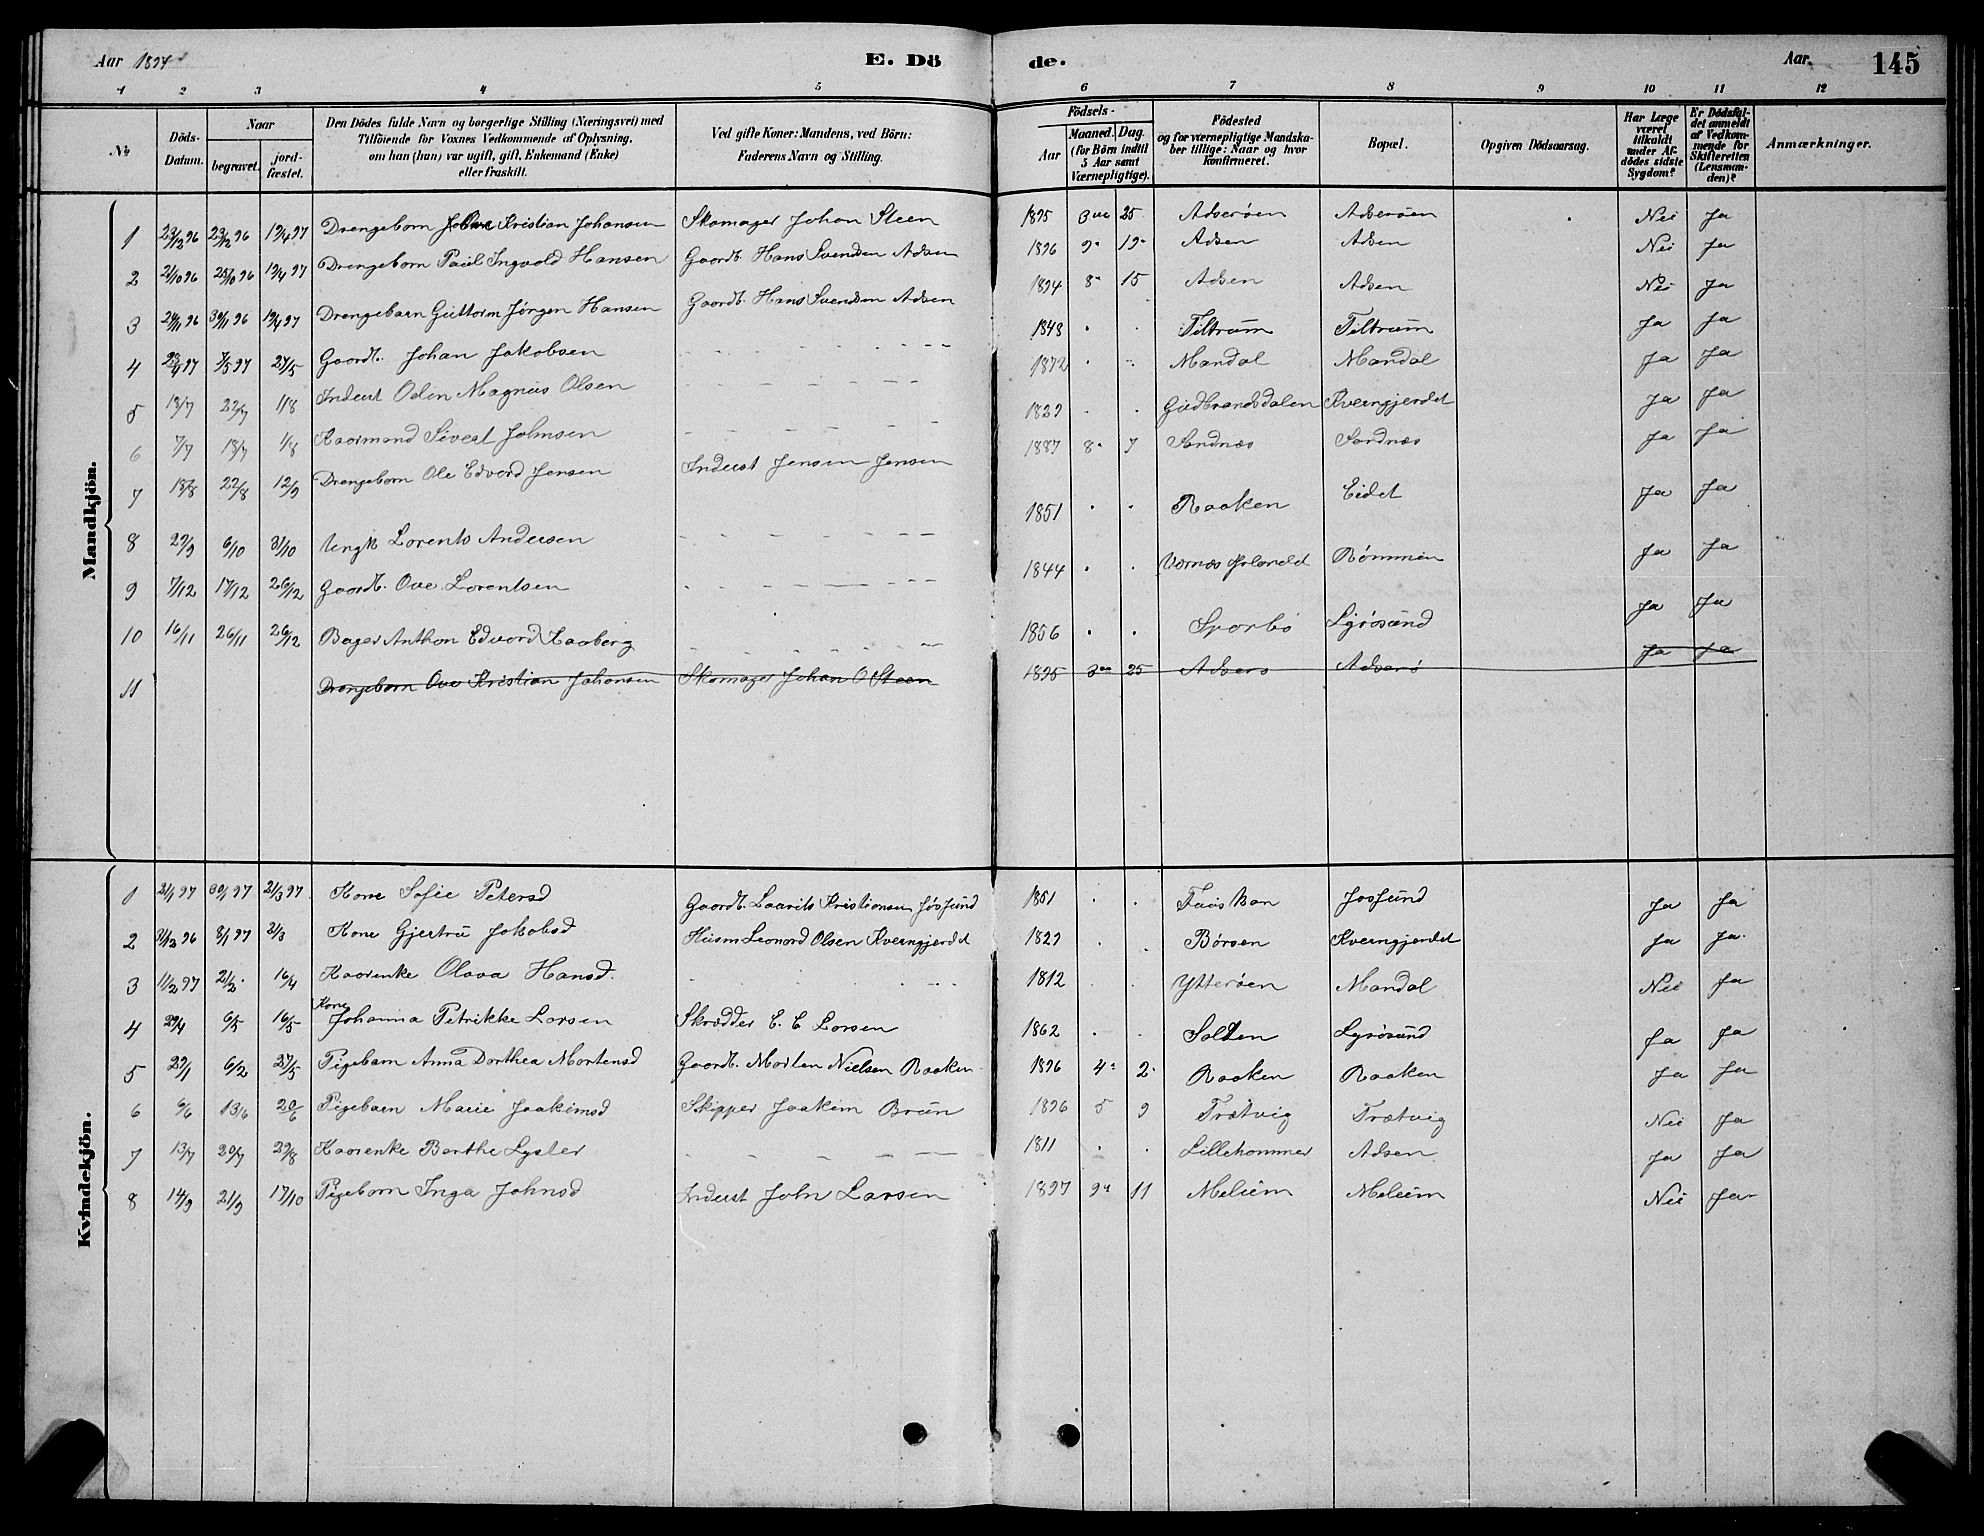 Aar 1897
E. Dö
de.
Aar.
145
1 2 3 4 5 6 7 8 9 10 11 12
No
Döds-Datum.
Naar
begravet. jord-fæstet.
Den Dödes fulde Navn og borgerlige Stilling (Næringsvei) med
Tilföiende for Voxnes Vedkommende af Oplysning,
om han (hun) var ugift, gift, Enkemand (Enke)
eller fraskilt.
Ved gifte Koner: Mandens, ved Börn:
Faderens Navn og Stilling.
Födsels-
Aar
Maaned. Dag.
(for Börn indtil
5 Aar samt
Værnepligtige).
Födested
og for værnepligtige Mandska-
ber tillige: Naar og hvor
konfirmeret.
Bopæl.
Opgiven Dödsaarsag.
Har Læge
været
tilkaldt
under Af-
dödes sidste
Sygdom?
Er Dödsfal-
det anmeldt
af Vedkom-
mende for
Skifteretten
(Lensman-
den)?
Anmærkninger.
Mandkjön.
1 23/12 96 29/12 96 19/4 97 Drengebarn Kristian Johansen Skomager Johan Steen 1895 3 25 Adserøen Adserøen Nei Ja
2 21/10 96 25/10 96 19/4 97 Drengebarn Paul Ingvald Hansen Gaardb. Hans Svendsen Adsen 1896 9 19 Adsen Adsen Nei Ja
3 24/11 96 30/11 96 19/4 97 Drengebarn Guttorm Jørgen Hansen Gaardb. Hans Svendsen Adsen 1894 8 15 Adsen Adsen Nei Ja
4 7/5 97 27/5 Gaardb. Johan Jakobsen 1848 Tiltrum Tiltrum Ja Ja
5 18/7 22/7 1/8 Inderst Odin Magnus Olsen 1872 Mandal Mandal Ja Ja
6 7/7 13/7 1/8 Kaarmand Sivert Johnsen 1829 Gudbrandsdalen Kverngjerdet Ja Ja
7 18/8 22/8 12/9 Drengebarn Ole Edvard Jensen Inderst Jensen Jensen 1887 8 7 Sandnæs Sandnæs Ja Ja
8 29/9 6/10 31/10 Ungk. Lorents Andersen 1851 Raaken Eidet Ja Ja
9 7/12 17/12 26/12 Gaardb. Ove Lorentsen 1844 Værnæs Rømmen Ja Ja
10 16/11 26/11 26/12 Bager Anthon Edvard Kaaberg 1856 Sparbo Lysøsund Ja Ja
11 Drengebarn Ove Kristian Johansen Skomager Johan O Steen 1895 3 25 Adserø Adserø Ja Ja
Kvindekjön.
1 21/1 97 30/1 97 21/3 97 Kone Sofie Petersd Gaardb. Laurits Kristiansen Jøsfund 1851 Jøsfund Ja Ja
2 31/12 96 8/1 97 21/3 Kone Gjertru Jakobsd Husm Leonard Olsen Kverngjerdet 1829 Børsen Kverngjerdet Ja Ja.
3 11/2 97 21/2 16/4 Kaarenke Olava Hansd. 1812 Ytterøen Mandal Nei Ja
4 29/4 6/5 16/5 Kone Johanna Petrikke Larsen Skrædder E. C Larsen 1862 Salten Lysøsund Ja Ja
5 29/1 6/2 27/5 Pigebarn Anna Dorthea Mortensd Gaardb. Morten Nielsen Raaken 1896 4 2 Raaken Raaken Ja Ja
6 6/6 13/6 20/6 Pigebarn Marie Joakimsd Skipper Joakim Brun 1896 5 9 Trætvig Trætvig Nei Ja
7 13/7 20/7 29/8 Kaarenke Berthe Lyster 1811 Lillehammer Adsen Ja Ja
8 14/9 21/9 17/10 Pigebarn Inga Johnsd Inderst John Larsen 1897 9 11 Melum Melum Nei Ja